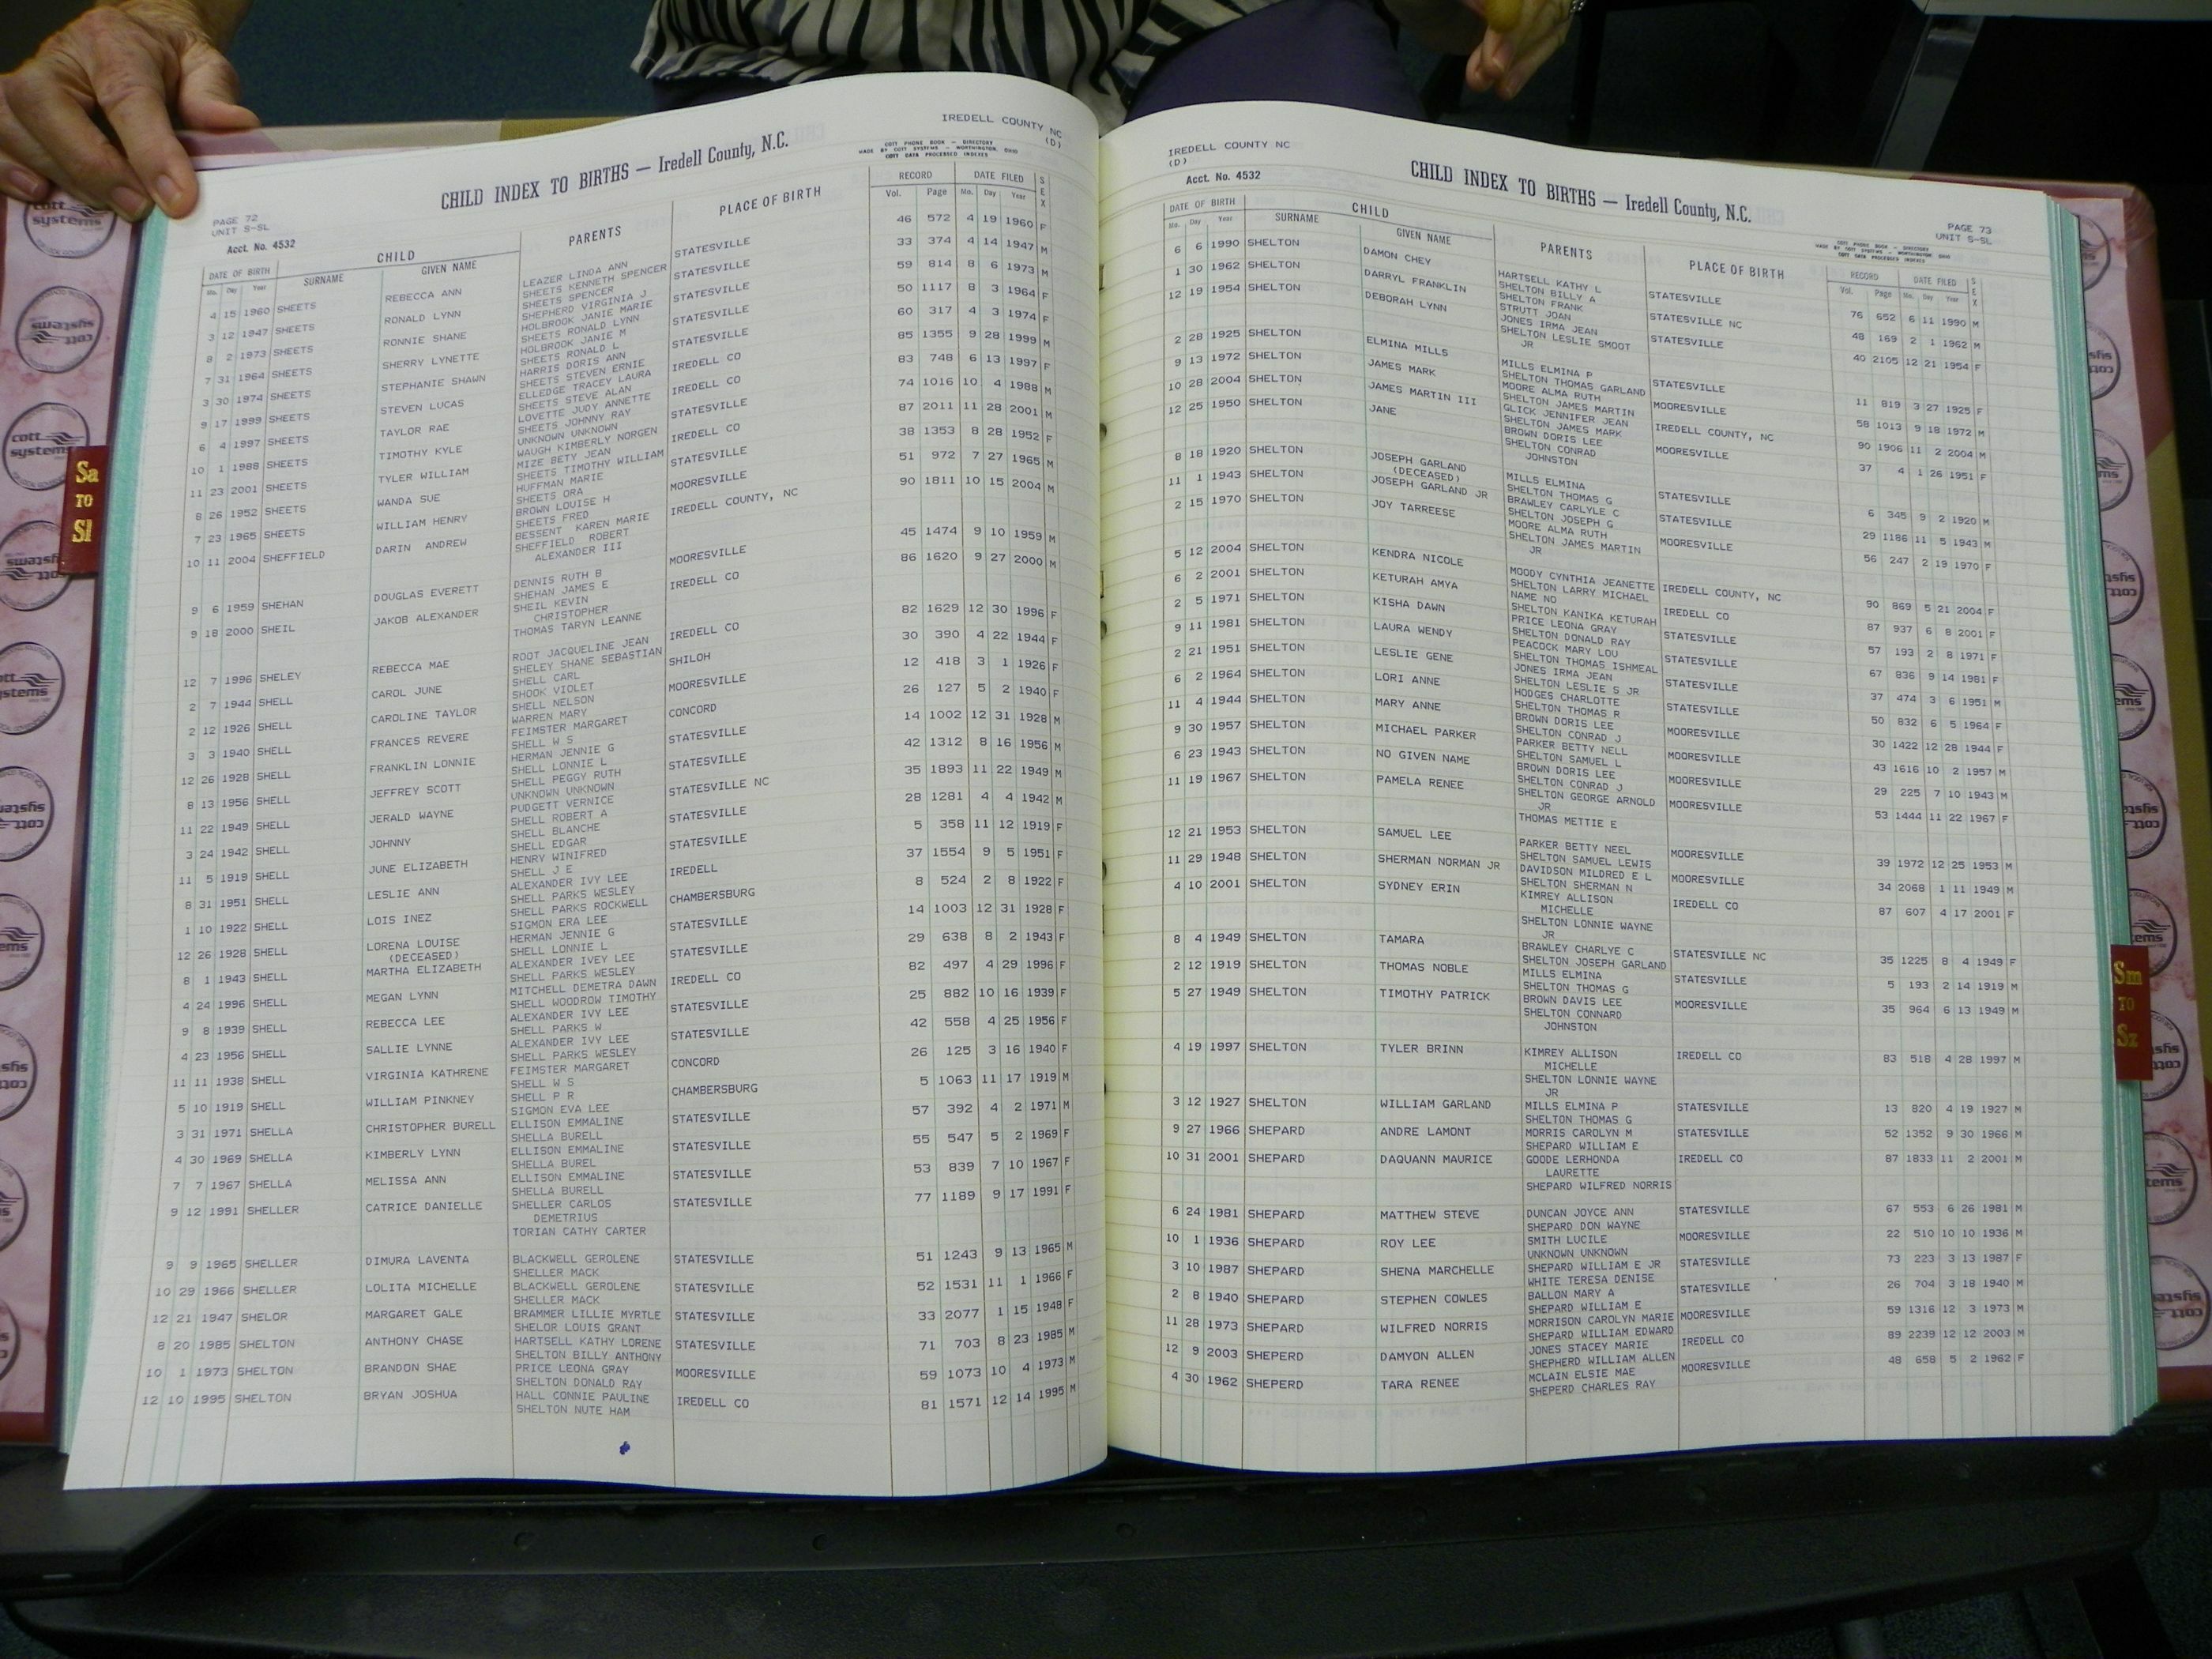 IREDELL COUNTY NC
(D)
CHILD INDEX TO BIRTHS — Iredell County, N.C.
COTT PHONE BOOK — DIRECTORY
MADE BY COTT SYSTEMS — WORTHINGTON, OHIO
COTT DATA PROCESSED INDEXES
PAGE 72
UNIT S-SL
Acct. No. 4532
DATE OF BIRTH CHILD PARENTS PLACE OF BIRTH RECORD DATE FILED SEX
Mo. Day Year SURNAME GIVEN NAME Vol. Page Mo. Day Year
4 15 1960 SHEETS REBECCA ANN LEAZER LINDA ANN STATESVILLE 46 572 4 19 1960 F
SHEETS KENNETH SPENCER
3 12 1947 SHEETS RONALD LYNN SHEETS SPENCER STATESVILLE 33 374 4 14 1947 M
SHEPHERD VIRGINIA J
8 2 1973 SHEETS RONNIE SHANE HOLBROOK JANIE MARIE STATESVILLE 59 814 8 6 1973 M
SHEETS RONALD LYNN
7 31 1964 SHEETS SHERRY LYNETTE HOLBROOK JANIE M STATESVILLE 50 1117 8 3 1964 F
SHEETS RONALD L
3 30 1974 SHEETS STEPHANIE SHAWN HARRIS DORIS ANN STATESVILLE 60 317 4 3 1974 F
SHEETS STEVEN ERNIE
9 17 1999 SHEETS STEVEN LUCAS ELLEDGE TRACEY LAURA IREDELL CO 85 1355 9 28 1999 M
SHEETS STEVE ALAN
6 4 1997 SHEETS TAYLOR RAE LOVETTE JUDY ANNETTE IREDELL CO 83 748 6 13 1997 F
SHEETS JOHNNY RAY
10 1 1988 SHEETS TIMOTHY KYLE UNKNOWN UNKNOWN STATESVILLE 74 1016 10 4 1988 M
WAUGH KIMBERLY NORGEN
11 23 2001 SHEETS TYLER WILLIAM MIZE BETY JEAN IREDELL CO 87 2011 11 28 2001 M
SHEETS TIMOTHY WILLIAM
8 26 1952 SHEETS WANDA SUE HUFFMAN MARIE STATESVILLE 38 1353 8 28 1952 F
SHEETS ORA
7 23 1965 SHEETS WILLIAM HENRY BROWN LOUISE H MOORESVILLE 51 972 7 27 1965 M
SHEETS FRED
10 11 2004 SHEFFIELD DARIN ANDREW BESSENT KAREN MARIE IREDELL COUNTY, NC 90 1811 10 15 2004 M
SHEFFIELD ROBERT
ALEXANDER III
9 6 1959 SHEHAN DOUGLAS EVERETT DENNIS RUTH B MOORESVILLE 45 1474 9 10 1959 M
SHEHAN JAMES E
9 18 2000 SHEIL JAKOB ALEXANDER SHEIL KEVIN IREDELL CO 86 1620 9 27 2000 M
CHRISTOPHER
THOMAS TARYN LEANNE
12 7 1996 SHELEY REBECCA MAE ROOT JACQUELINE JEAN IREDELL CO 82 1629 12 30 1996 F
SHELEY SHANE SEBASTIAN
2 7 1944 SHELL CAROL JUNE SHELL CARL SHILOH 30 390 4 22 1944 F
SHOOK VIOLET
2 12 1926 SHELL CAROLINE TAYLOR SHELL NELSON MOORESVILLE 12 418 3 1 1926 F
WARREN MARY
3 3 1940 SHELL FRANCES REVERE FEIMSTER MARGARET CONCORD 26 127 5 2 1940 F
SHELL W S
12 26 1928 SHELL FRANKLIN LONNIE HERMAN JENNIE G STATESVILLE 14 1002 12 31 1928 M
SHELL LONNIE L
8 13 1956 SHELL JEFFREY SCOTT SHELL PEGGY RUTH STATESVILLE 42 1312 8 16 1956 M
UNKNOWN UNKNOWN
11 22 1949 SHELL JERALD WAYNE PUDGETT VERNICE STATESVILLE NC 35 1893 11 22 1949 M
SHELL ROBERT A
3 24 1942 SHELL JOHNNY SHELL BLANCHE STATESVILLE 28 1281 4 4 1942 M
SHELL EDGAR
11 5 1919 SHELL JUNE ELIZABETH HENRY WINIFRED STATESVILLE 5 358 11 12 1919 F
SHELL J E
8 31 1951 SHELL LESLIE ANN ALEXANDER IVY LEE IREDELL 37 1554 9 5 1951 F
SHELL PARKS WESLEY
1 10 1922 SHELL LOIS INEZ SHELL PARKS ROCKWELL CHAMBERSBURG 8 524 2 8 1922 F
SIGMON ERA LEE
12 26 1928 SHELL LORENA LOUISE HERMAN JENNIE G STATESVILLE 14 1003 12 31 1928 F
(DECEASED) SHELL LONNIE L
8 1 1943 SHELL MARTHA ELIZABETH ALEXANDER IVEY LEE STATESVILLE 29 638 8 2 1943 F
SHELL PARKS WESLEY
4 24 1996 SHELL MEGAN LYNN MITCHELL DEMETRA DAWN IREDELL CO 82 497 4 29 1996 F
SHELL WOODROW TIMOTHY
9 8 1939 SHELL REBECCA LEE ALEXANDER IVY LEE STATESVILLE 25 882 10 16 1939 F
SHELL PARKS W
4 23 1956 SHELL SALLIE LYNNE ALEXANDER IVY LEE STATESVILLE 42 558 4 25 1956 F
SHELL PARKS WESLEY
11 11 1938 SHELL VIRGINIA KATHRENE FEIMSTER MARGARET CONCORD 26 125 3 16 1940 F
SHELL W S
5 10 1919 SHELL WILLIAM PINKNEY SHELL P R CHAMBERSBURG 5 1063 11 17 1919 M
SIGMON EVA LEE
3 31 1971 SHELLA CHRISTOPHER BURELL ELLISON EMMALINE STATESVILLE 57 392 4 2 1971 M
SHELLA BURELL
4 30 1969 SHELLA KIMBERLY LYNN ELLISON EMMALINE STATESVILLE 55 547 5 2 1969 F
SHELLA BUREL
7 7 1967 SHELLA MELISSA ANN ELLISON EMMALINE STATESVILLE 53 839 7 10 1967 F
SHELLA BURELL
9 12 1991 SHELLER CATRICE DANIELLE SHELLER CARLOS STATESVILLE 77 1189 9 17 1991 F
DEMETRIUS
TORIAN CATHY CARTER
9 9 1965 SHELLER DIMURA LAVENTA BLACKWELL GEROLENE STATESVILLE 51 1243 9 13 1965 M
SHELLER MACK
10 29 1966 SHELLER LOLITA MICHELLE BLACKWELL GEROLENE STATESVILLE 52 1531 11 1 1966 F
SHELLER MACK
12 21 1947 SHELOR MARGARET GALE BRAMMER LILLIE MYRTLE STATESVILLE 33 2077 1 15 1948 F
SHELOR LOUIS GRANT
8 20 1985 SHELTON ANTHONY CHASE HARTSELL KATHY LORENE STATESVILLE 71 703 8 23 1985 M
SHELTON BILLY ANTHONY
10 1 1973 SHELTON BRANDON SHAE PRICE LEONA GRAY MOORESVILLE 59 1073 10 4 1973 M
SHELTON DONALD RAY
12 10 1995 SHELTON BRYAN JOSHUA HALL CONNIE PAULINE IREDELL CO 81 1571 12 14 1995 M
SHELTON NUTE HAM
IREDELL COUNTY NC
(D)
Acct. No. 4532
CHILD INDEX TO BIRTHS — Iredell County, N.C.
PAGE 73
UNIT S-SL
COTT PHONE BOOK — DIRECTORY
MADE BY COTT SYSTEMS — WORTHINGTON, OHIO
COTT DATA PROCESSED INDEXES
DATE OF BIRTH CHILD PARENTS PLACE OF BIRTH RECORD DATE FILED SEX
Mo. Day Year SURNAME GIVEN NAME Vol. Page Mo. Day Year
6 6 1990 SHELTON DAMON CHEY HARTSELL KATHY L STATESVILLE 76 652 6 11 1990 M
SHELTON BILLY A
1 30 1962 SHELTON DARRYL FRANKLIN SHELTON FRANK STATESVILLE NC 48 169 2 1 1962 M
STRUTT JOAN
12 19 1954 SHELTON DEBORAH LYNN JONES IRMA JEAN STATESVILLE 40 2105 12 21 1954 F
SHELTON LESLIE SMOOT
JR
2 28 1925 SHELTON ELMINA MILLS MILLS ELMINA P STATESVILLE 11 819 3 27 1925 F
SHELTON THOMAS GARLAND
9 13 1972 SHELTON JAMES MARK MOORE ALMA RUTH MOORESVILLE 58 1013 9 18 1972 M
SHELTON JAMES MARTIN
10 28 2004 SHELTON JAMES MARTIN III GLICK JENNIFER JEAN IREDELL COUNTY, NC 90 1906 11 2 2004 M
SHELTON JAMES MARK
12 25 1950 SHELTON JANE BROWN DORIS LEE MOORESVILLE 37 4 1 26 1951 F
SHELTON CONRAD
JOHNSTON
8 18 1920 SHELTON JOSEPH GARLAND MILLS ELMINA STATESVILLE 6 345 9 2 1920 M
(DECEASED) SHELTON THOMAS G
11 1 1943 SHELTON JOSEPH GARLAND JR BRAWLEY CARLYLE C STATESVILLE 29 1186 11 5 1943 M
SHELTON JOSEPH G
2 15 1970 SHELTON JOY TARREESE MOORE ALMA RUTH MOORESVILLE 56 247 2 19 1970 F
SHELTON JAMES MARTIN
JR
5 12 2004 SHELTON KENDRA NICOLE MOODY CYNTHIA JEANETTE IREDELL COUNTY, NC 90 869 5 21 2004 F
SHELTON LARRY MICHAEL
6 2 2001 SHELTON KETURAH AMYA NAME NO IREDELL CO 87 937 6 8 2001 F
SHELTON KANIKA KETURAH
2 5 1971 SHELTON KISHA DAWN PRICE LEONA GRAY STATESVILLE 57 193 2 8 1971 F
SHELTON DONALD RAY
9 11 1981 SHELTON LAURA WENDY PEACOCK MARY LOU STATESVILLE 67 836 9 14 1981 F
SHELTON THOMAS ISHMEAL
2 21 1951 SHELTON LESLIE GENE JONES IRMA JEAN STATESVILLE 37 474 3 6 1951 M
SHELTON LESLIE S JR
6 2 1964 SHELTON LORI ANNE HODGES CHARLOTTE STATESVILLE 50 832 6 5 1964 F
SHELTON THOMAS R
11 4 1944 SHELTON MARY ANNE BROWN DORIS LEE MOORESVILLE 30 1422 12 28 1944 F
SHELTON CONRAD J
9 30 1957 SHELTON MICHAEL PARKER PARKER BETTY NELL MOORESVILLE 43 1616 10 2 1957 M
SHELTON SAMUEL L
6 23 1943 SHELTON NO GIVEN NAME BROWN DORIS LEE MOORESVILLE 29 225 7 10 1943 M
SHELTON CONRAD J
11 19 1967 SHELTON PAMELA RENEE SHELTON GEORGE ARNOLD MOORESVILLE 53 1444 11 22 1967 F
JR
THOMAS METTIE E
12 21 1953 SHELTON SAMUEL LEE PARKER BETTY NEEL MOORESVILLE 39 1972 12 25 1953 M
SHELTON SAMUEL LEWIS
11 29 1948 SHELTON SHERMAN NORMAN JR DAVIDSON MILDRED E L MOORESVILLE 34 2068 1 11 1949 M
SHELTON SHERMAN N
4 10 2001 SHELTON SYDNEY ERIN KIMREY ALLISON IREDELL CO 87 607 4 17 2001 F
MICHELLE
SHELTON LONNIE WAYNE
JR
8 4 1949 SHELTON TAMARA BRAWLEY CHARLYE C STATESVILLE NC 35 1225 8 4 1949 F
SHELTON JOSEPH GARLAND
2 12 1919 SHELTON THOMAS NOBLE MILLS ELMINA STATESVILLE 5 193 2 14 1919 M
SHELTON THOMAS G
5 27 1949 SHELTON TIMOTHY PATRICK BROWN DAVIS LEE MOORESVILLE 35 964 6 13 1949 M
SHELTON CONNARD
JOHNSTON
4 19 1997 SHELTON TYLER BRINN KIMREY ALLISON IREDELL CO 83 518 4 28 1997 M
MICHELLE
SHELTON LONNIE WAYNE
JR
3 12 1927 SHELTON WILLIAM GARLAND MILLS ELMINA P STATESVILLE 13 820 4 19 1927 M
SHELTON THOMAS G
9 27 1966 SHEPARD ANDRE LAMONT MORRIS CAROLYN M STATESVILLE 52 1352 9 30 1966 M
SHEPARD WILLIAM E
10 31 2001 SHEPARD DAQUANN MAURICE GOODE LERHONDA IREDELL CO 87 1833 11 2 2001 M
LAURETTE
SHEPARD WILFRED NORRIS
6 24 1981 SHEPARD MATTHEW STEVE DUNCAN JOYCE ANN STATESVILLE 67 553 6 26 1981 M
SHEPARD DON WAYNE
10 1 1936 SHEPARD ROY LEE SMITH LUCILE MOORESVILLE 22 510 10 10 1936 M
UNKNOWN UNKNOWN
3 10 1987 SHEPARD SHENA MARCHELLE SHEPARD WILLIAM E JR STATESVILLE 73 223 3 13 1987 F
WHITE TERESA DENISE
2 8 1940 SHEPARD STEPHEN COWLES BALLON MARY A STATESVILLE 26 704 3 18 1940 M
SHEPARD WILLIAM E
11 28 1973 SHEPARD WILFRED NORRIS MORRISON CAROLYN MARIE MOORESVILLE 59 1316 12 3 1973 M
SHEPARD WILLIAM EDWARD
12 9 2003 SHEPERD DAMYON ALLEN JONES STACEY MARIE IREDELL CO 89 2239 12 12 2003 M
SHEPHERD WILLIAM ALLEN
4 30 1962 SHEPERD TARA RENEE MCLAIN ELSIE MAE MOORESVILLE 48 658 5 2 1962 F
SHEPERD CHARLES RAY
Sa
TO
Sl
Sm
TO
Sz
cott
systems
cott
systems